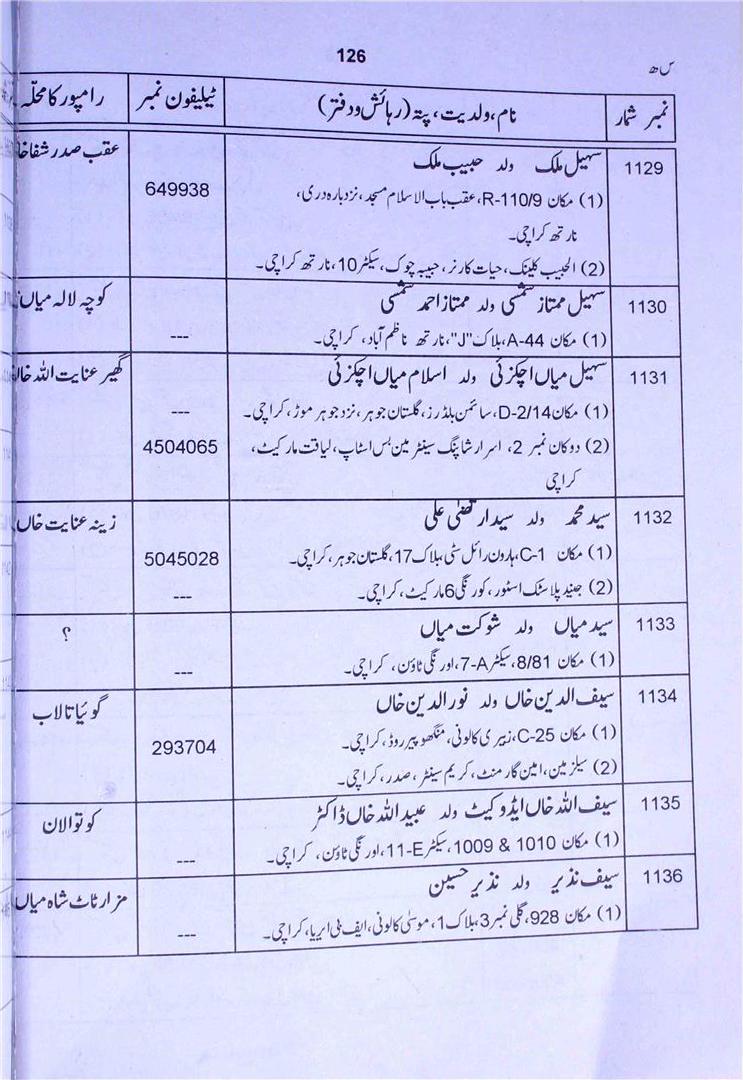 126
س ھ
نمبر شمار	نام، ولدیت، پتہ (رہائش و دفتر)	ٹیلیفون نمبر	رامپور کا محلّہ
1129	سہیل ملک ولد حبیب ملک	عقب صدر شفاخا
(1) مکان R-110/9، عقب باب الاسلام مسجد، نزد بارہ دری،	649938
نارتھ کراچی۔
(2) الحبیب کلینک، حیات کارنر، حبیبہ چوک، سیکٹر 10، نارتھ کراچی۔
1130	سہیل ممتاز شمسی ولد ممتاز احمد شمسی	کوچہ لالہ میاں
(1) مکان A-44، بلاک "J"، نارتھ ناظم آباد، کراچی۔	---
1131	سہیل میاں اچکزئی ولد اسلام میاں اچکزئی	گھیر عنایت اللہ خاں
(1) مکان D-2/14، سائمن بلڈرز، گلستان جوہر، نزد جوہر موڑ، کراچی۔	---
(2) دوکان نمبر 2، اسرار شاپنگ سینٹر مین بس اسٹاپ، لیاقت مارکیٹ،	4504065
کراچی
1132	سید محمد ولد سید ارتضیٰ علی	زینہ عنایت خاں
(1) مکان C-1، ہارون رائل سٹی، بلاک 17، گلستان جوہر، کراچی۔	5045028
(2) جنید پلاسٹک اسٹور، کورنگی 6 مارکیٹ، کراچی۔	---
1133	سید میاں ولد شوکت میاں	؟
(1) مکان 8/81، سیکٹر 7-A، اورنگی ٹاؤن، کراچی۔	---
1134	سیف الدین خاں ولد نور الدین خاں	گوئیا تالاب
(1) مکان C-25، زبیری کالونی، منگھو پیر روڈ، کراچی۔	293704
(2) سیلز مین، امین گارمنٹ، کریم سینٹر، صدر، کراچی۔
1135	سیف اللہ خاں ایڈوکیٹ ولد عبید اللہ خاں ڈاکٹر	کوتوالان
(1) مکان 1010 & 1009، سیکٹر 11-E، اورنگی ٹاؤن، کراچی۔	---
1136	سیف نذیر ولد نذیر حسین	مزار ٹاٹ شاہ میاں
(1) مکان 928، گلی نمبر 3، بلاک 1، موسیٰ کالونی، ایف بی ایریا، کراچی۔	---